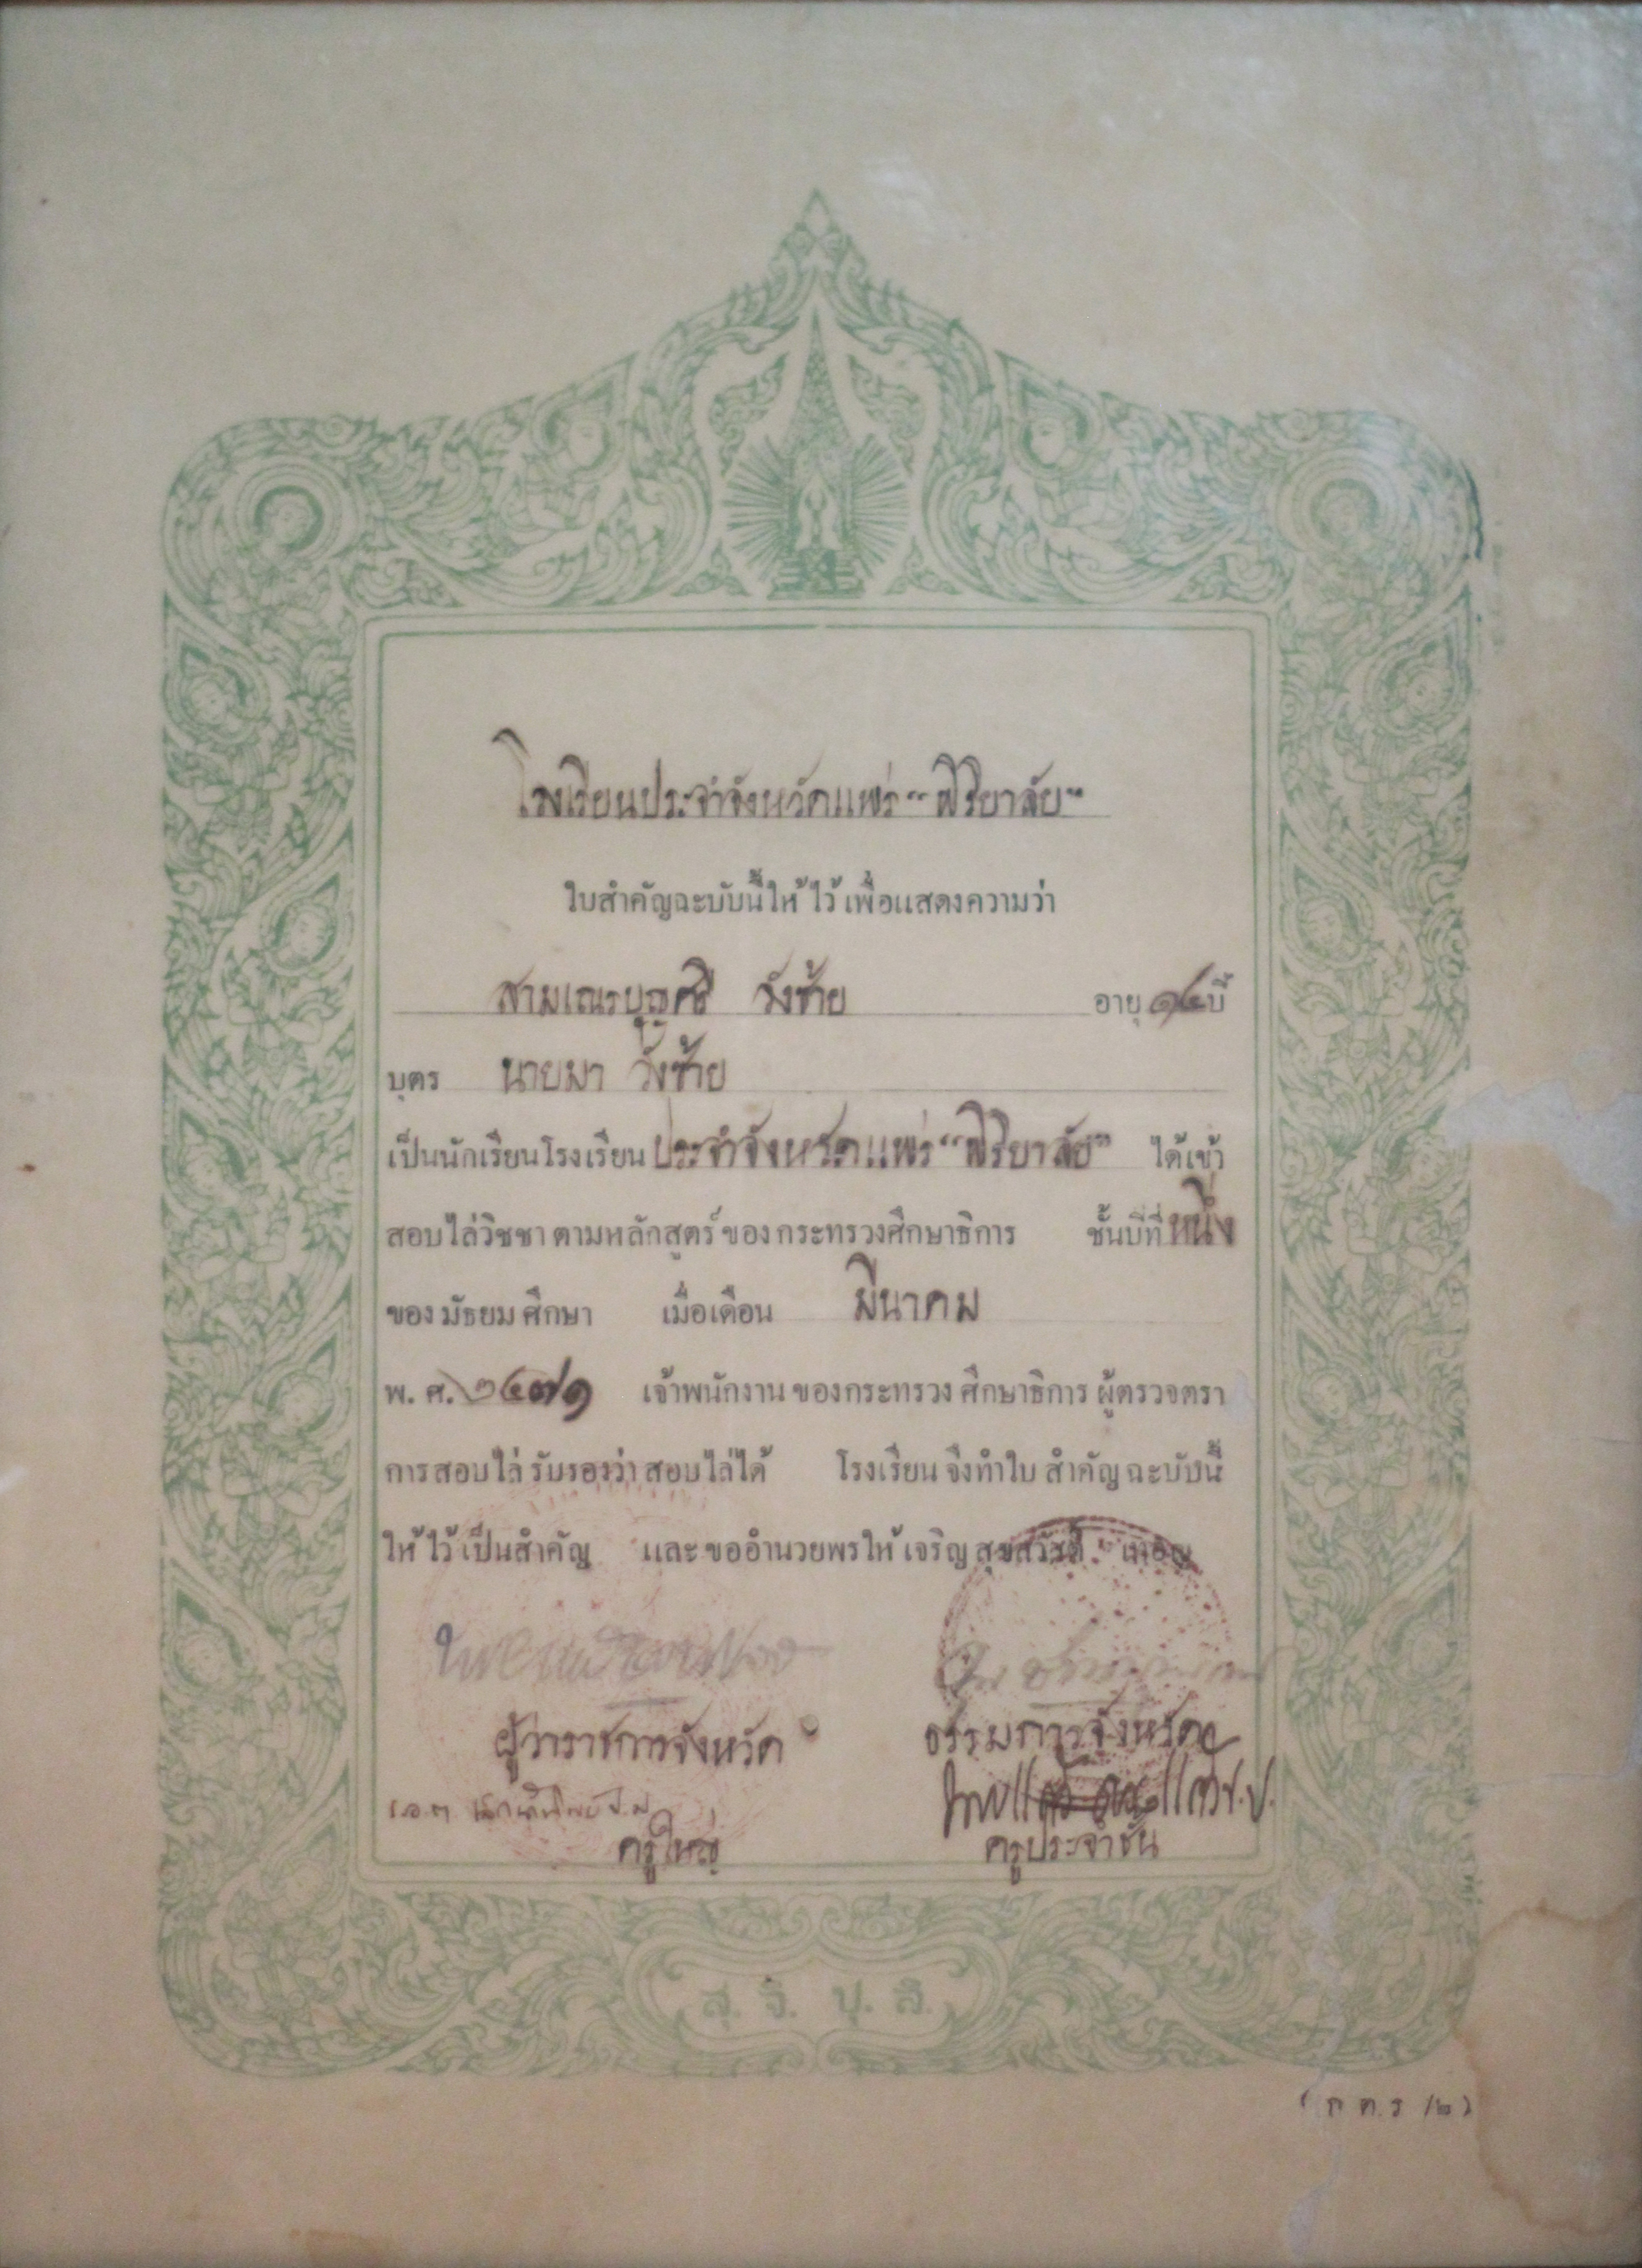 โรงเรียนประจำจังหวัดแพร่ "พิริยาลัย"
ใบสำคัญฉะบับนี้ให้ไว้เพื่อแสดงความว่า
สามเณรบุญศรี วังซ้าย อายุ ปี
บุตร นายมา วังซ้าย
เป็นนักเรียนโรงเรียนประจำจังหวัดแพร่ "พิริยาลัย" ได้เข้า
สอบไล่วิชชาตามหลักสูตร์ของกระทรวงศึกษาธิการ ชั้นปีที่หนึ่ง
ของมัธยมศึกษา เมื่อเดือน มีนาคม
พ. ศ. ๒๔๗๑ เจ้าพนักงานของกระทรวงศึกษาธิการผู้ตรวจตรา
การสอบไล่รับรองว่าสอบไล่ได้ โรงเรียนจึงทำใบสำคัญฉะบับนี้
ให้ไว้เป็นสำคัญ และขออำนวยพรให้เจริญสุขสวัสดิ์ เทอญ
ผู้ว่าราชการจังหวัด ธรรมการจังหวัด
ครูใหญ่ ครูประจำชั้น
สุ. จิ. ปุ. ลิ.
(ก ต. ร /๒)